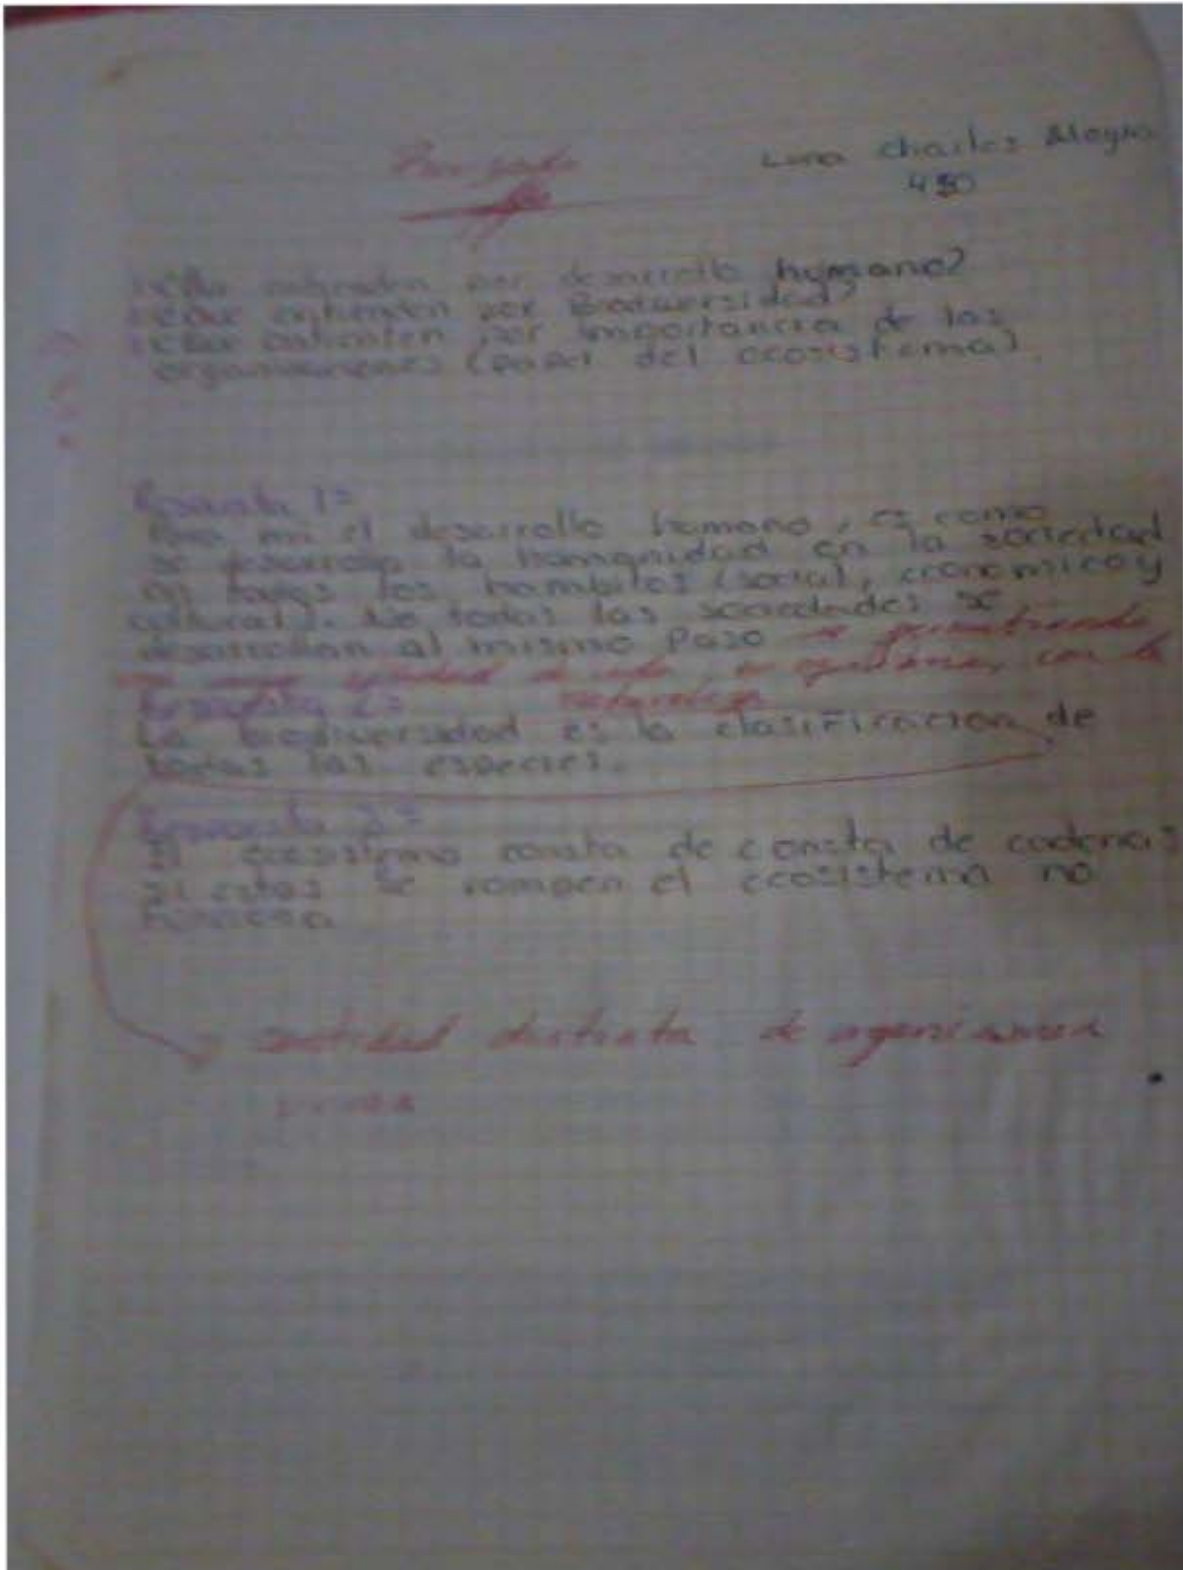 Luna Charles
450
entienden por desarrollo humano?
entienden por Biodiversidad?
entienten por importancia de los
organismenes (papel del ecosistema)
Respuesta 1=
Para mi el desarrollo homano, es como
se desarrolla la homanidad en la sociedad
en todos los hambitos (social, economico y
cultural). No todas las sociedades se
desarrollan al mismo Paso
calidad de vida en con la
Respuesta 2= naturaleza
La biodiversidad es la clasificacion de
todas las especies.
Respuesta 3=
El ecosistema consta de consta de cadenas
si estas se rompen el ecosistema no
funciona
cantidad distinta de organismos
vivos